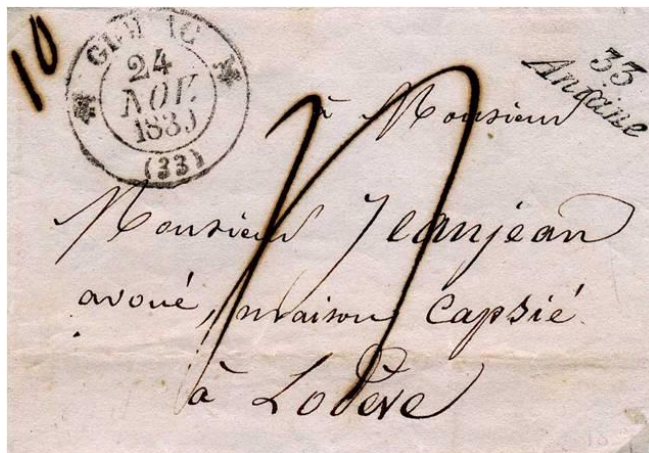 10
24
NOV.
(33)
33
Aniane
à Monsieur
Monsieur Jeanjean
avoué, maison Capsié
à Lodève